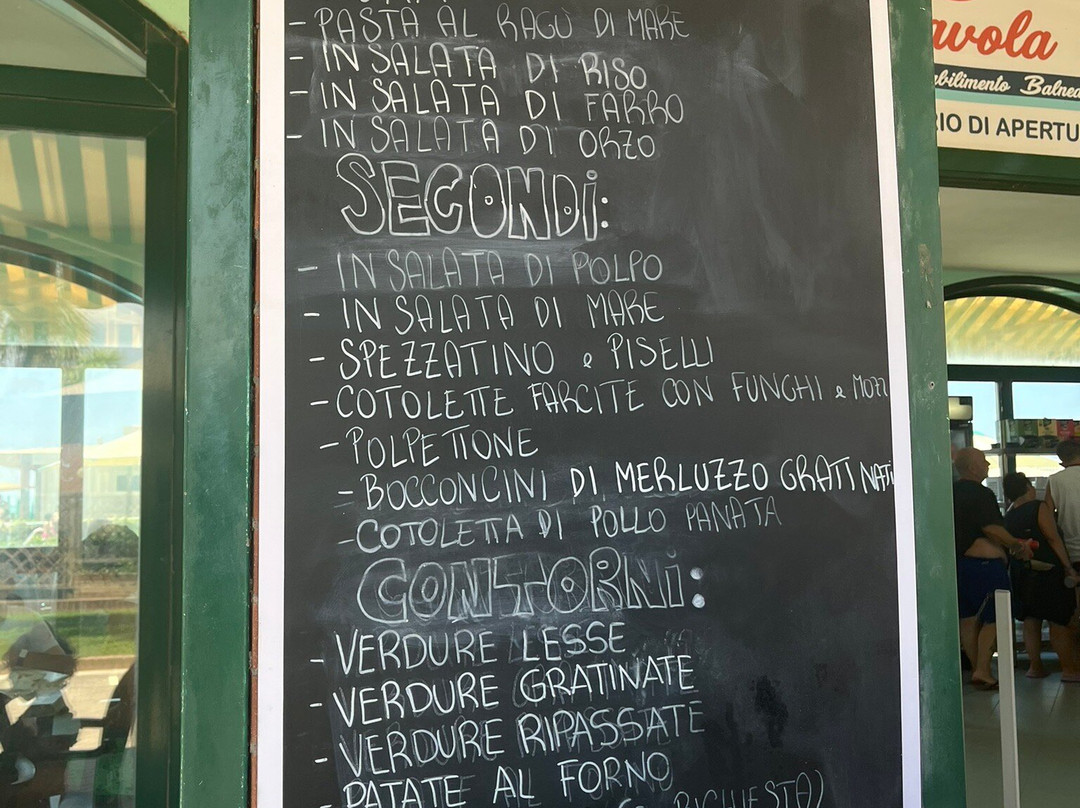 - PASTA AL RAGÙ DI MARE
- INSALATA DI RISO
- INSALATA DI FARRO
- INSALATA DI ORZO
SECONDI:
- INSALATA DI POLPO
- INSALATA DI MARE
- SPEZZATINO e PISELLI
- COTOLETTE FARCITE CON FUNGHI e MOZZ
- POLPETTONE
- BOCCONCINI DI MERLUZZO GRATINATI
- COTOLETTA DI POLLO PANATA
CONTORNI:
- VERDURE LESSE
- VERDURE GRATINATE
- VERDURE RIPASSATE
- PATATE AL FORNO
RICHIESTA)
avola
abilimento Balnea
RIO DI APERTU